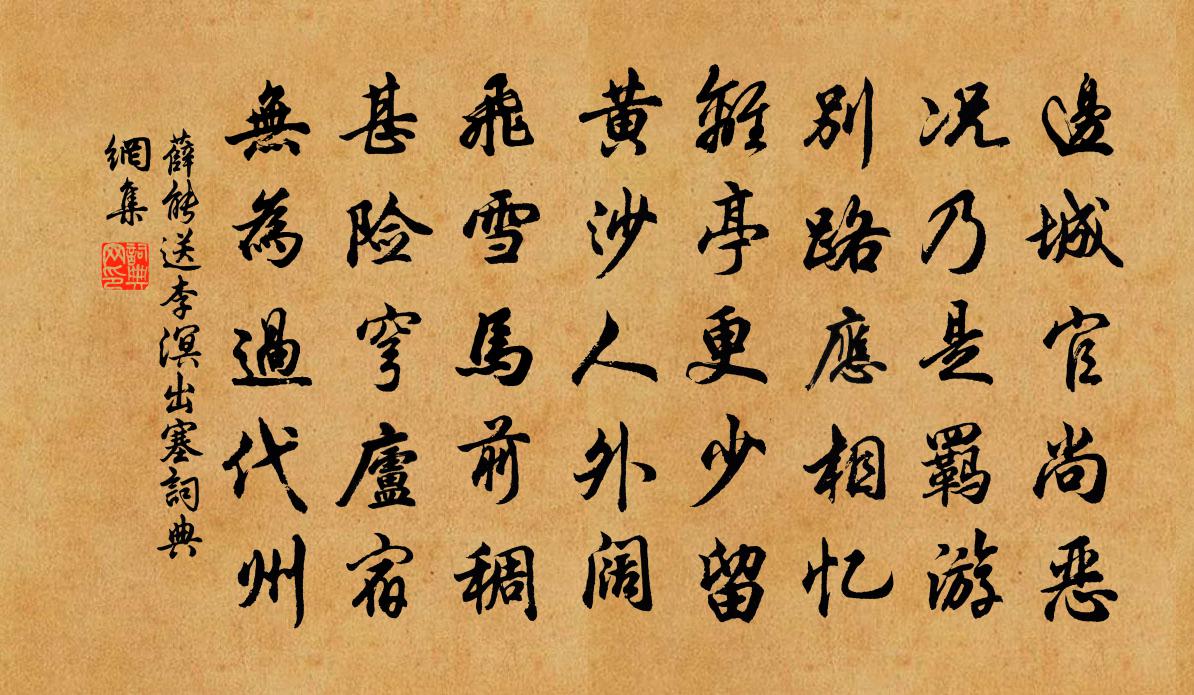 邊城官尚恶
况乃是羁游
别路應相忆
離亭更少留
黄沙人外阔
飛雪馬前稠
甚险穹廬宿
無為過代州
薛能送李溟出塞詞典
網集
詞典
网印